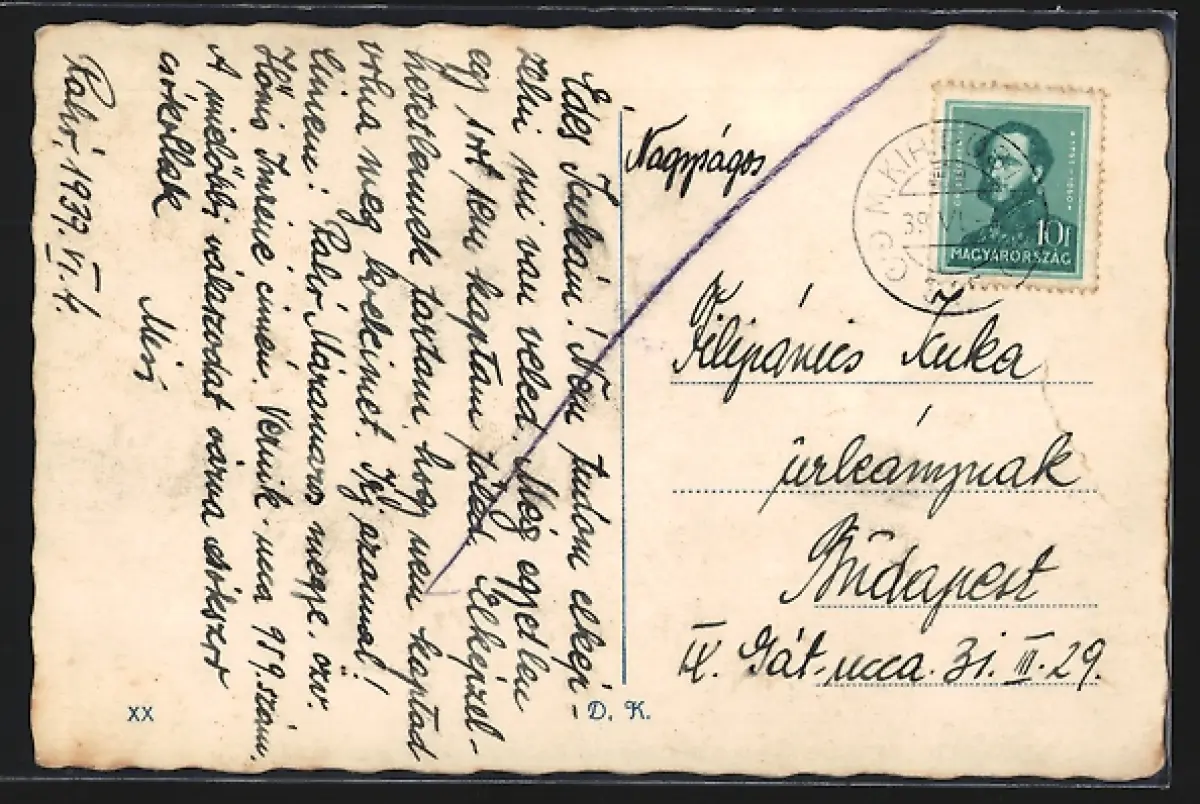 Édes Jukám! Nem tudom elkép-
zelni mi van veled. Még egyetlen
egy sort sem kaptam tőled. Elképzel-
hetetlennek tartom hogy nem kaptad
volna meg leveleimet. Írj azonnal!
Címem: Rahó Máramaros megye. özv.
Imréné címén. Vernik-ucca 959. szám.
A mielőbbi válaszodat várva sokszor
csókollak
Misi
Rahó, 1939. VI. 1.
Nagyságos
Filipánics Juka
úrleánynak
Budapest
IX. Gát-ucca. 31. III. 29.
M. KIR.
39 VI
10f
MAGYARORSZÁG
XX
D. K.